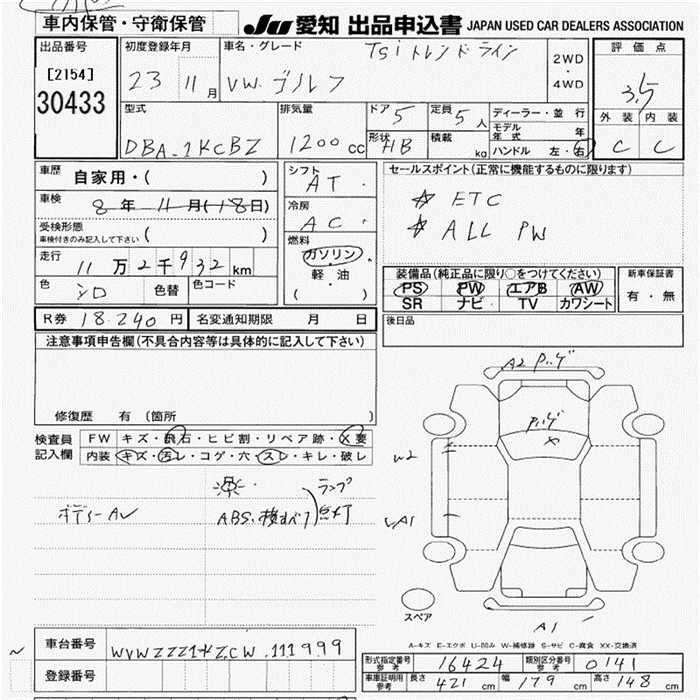 車内保管・守衛保管
JU 愛知 出品申込書 JAPAN USED CAR DEALERS ASSOCIATION
出品番号
[2154]
30433
初度登録年月
23 11月
車名・グレード
Tsiトレンドライン
VW. ゴルフ
2WD
・
4WD
評価点
3.5
外装 内装
C C
型式
DBA-1KCBZ
排気量
1200cc
ドア 5
形状 HB
定員 5人
積載 kg
ディーラー・並行
モデル年式 年
ハンドル 左・右
車歴
自家用・( )
車検
8年 11月(18日)
受検形態
車検付きのみ記入して下さい ( )
走行
11万2千932km
色 シロ 色替 色コード
シフト
AT
冷房
AC
燃料
ガソリン
・
軽油
( ・ )
セールスポイント(正常に機能するものに限ります)
☆ ETC
☆ ALL PW
装備品(純正品に限り○をつけてください)
PS PW エアB AW
SR ナビ TV カワシート
新車保証書
有・無
R券 18.240円 名変通知期限 月 日
後日品
注意事項申告欄(不具合内容等は具体的に記入して下さい)
修復歴 有 (箇所 )
検査員
記入欄
FW キズ・飛石・ヒビ割・リペア跡・X要
内装 キズ・汚レ・コゲ・穴・スレ・キレ・破レ
ランプ
点灯
A2
W2
A1
スペア
A1
A-キズ E-エクボ U-凹み W-補修跡 S-サビ C-腐食 XX-交換済
車台番号 WVWZZZ1KZCW.111999
登録番号
形式指定番号 参考 16424 類別区分番号 参考 0141
車庫証明用 参考 長さ 421cm 幅 179cm 高さ 148cm